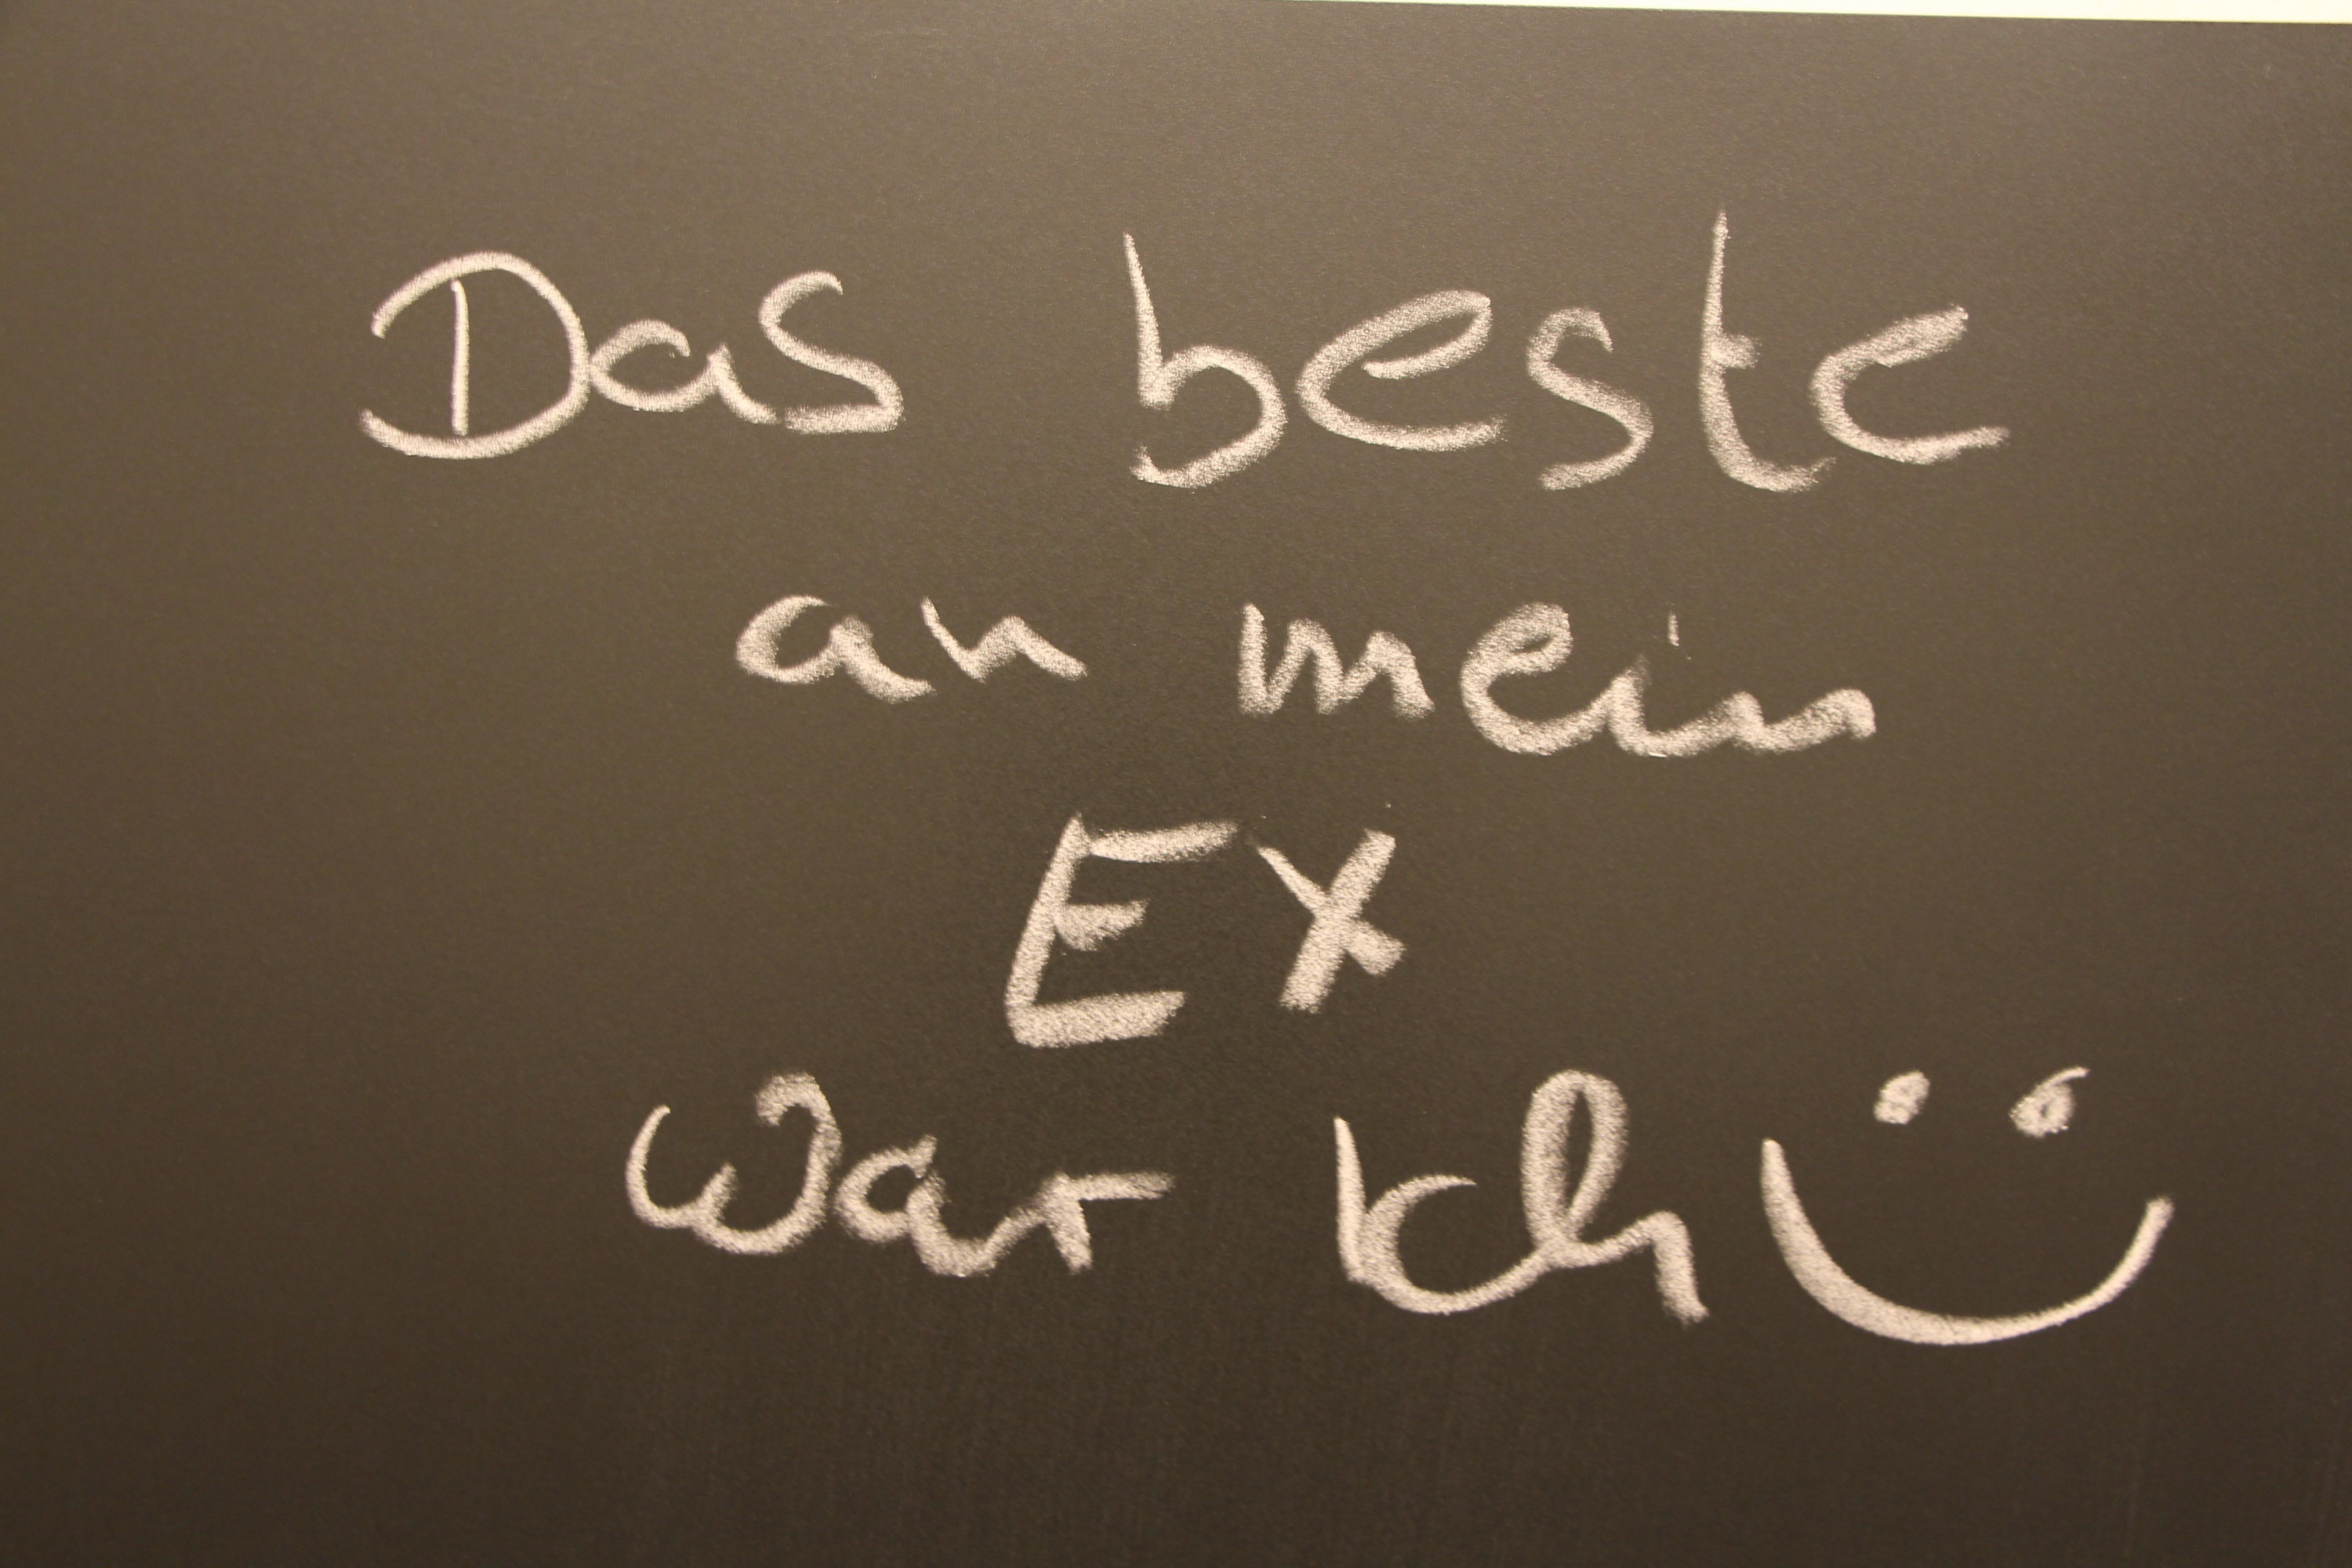 Das beste
an mein
Ex
war Ich